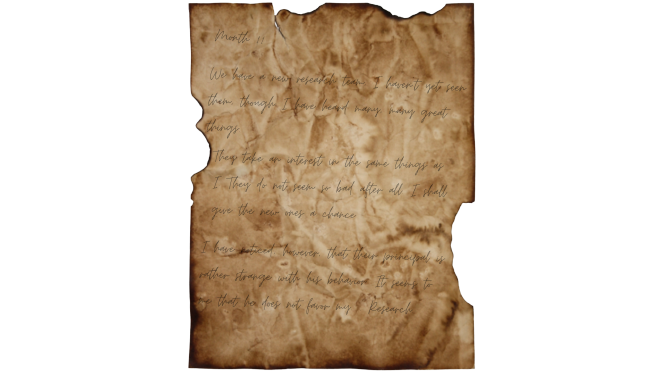 Month 11
We have a new research team. I haven't yet seen
them, though I have heard many, many great
things.
They take an interest in the same things as
I. They do not seem so bad after all. I shall
give the new ones a chance.
I have noticed, however, that their principal is
rather strange with his behavior. It seems to
that he does not favor my Research